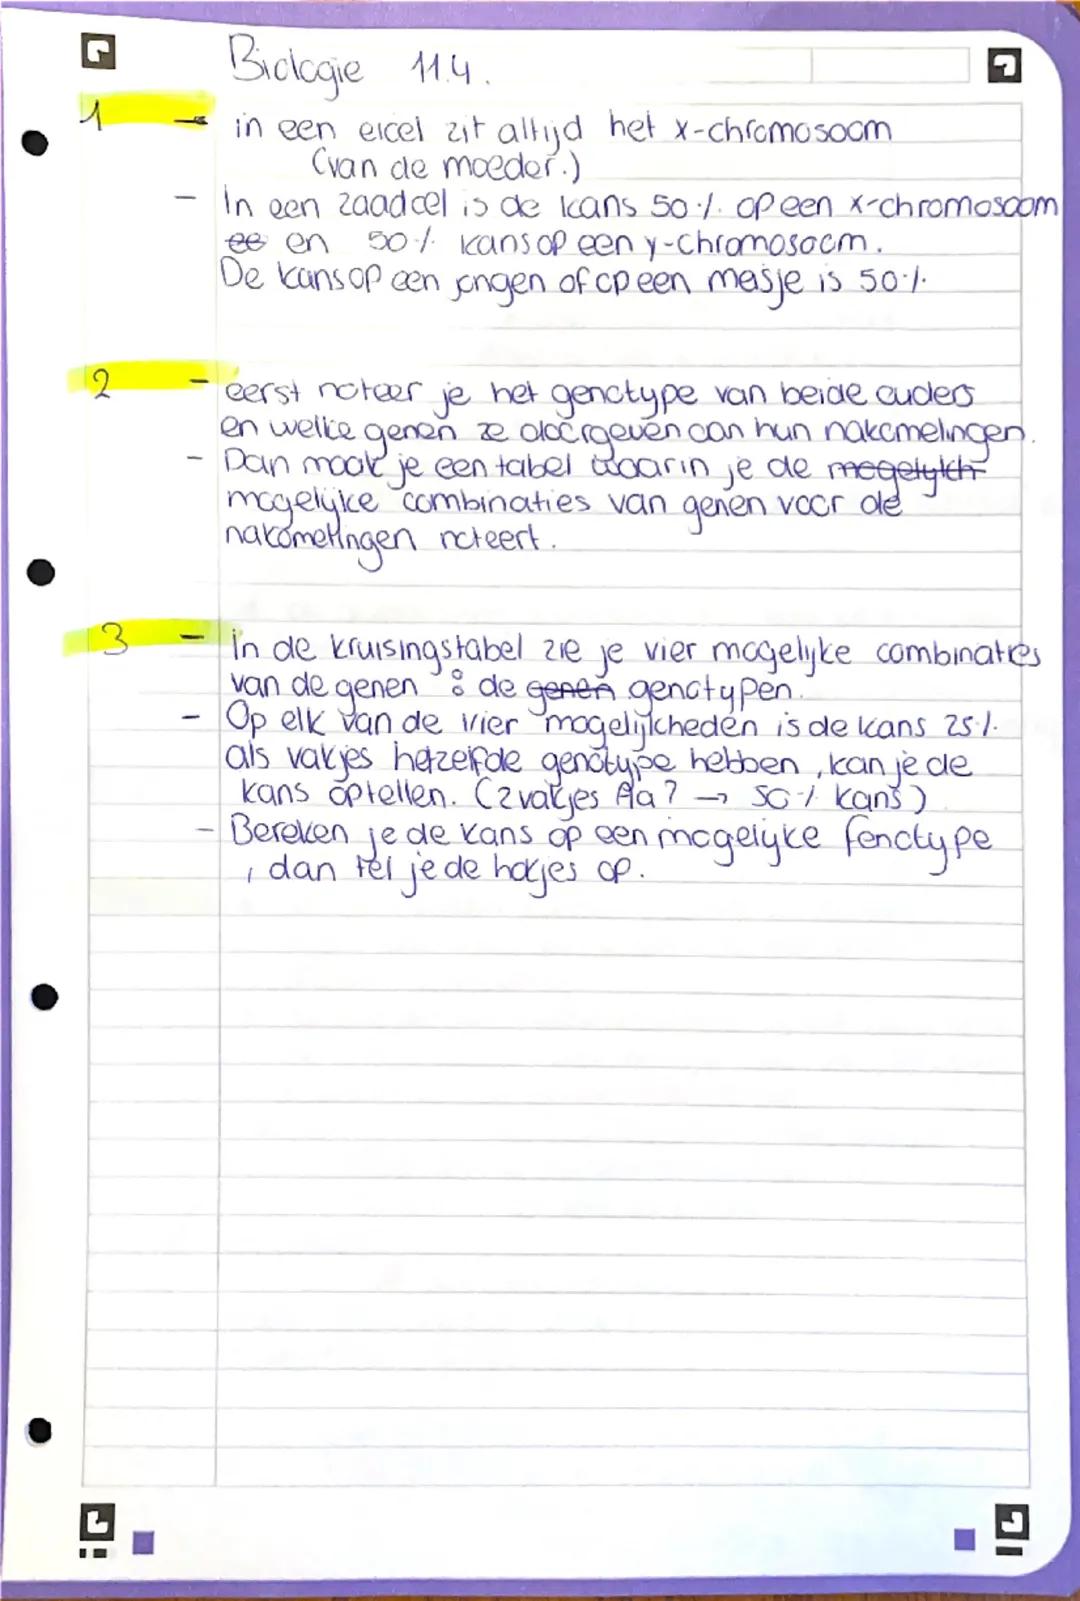 Biologie 11.4.
1 - in een eicel zit altijd het x-chromosoom
(van de moeder.)
- In een zaadcel is de kans 50% op een x-chromosoom
ee en 50% kans op een y-chromosoom.
De kans op een jongen of op een meisje is 50%.
2 - eerst noteer je het genotype van beide ouders
en welke genen ze doorgeven aan hun nakomelingen.
- Dan maak je een tabel waarin je de mogelykh
mogelyke combinaties van genen voor de
nakomelingen noteert.
3 - In de kruisingstabel zie je vier mogelyke combinaties
van de genen : de genen genotypen.
- Op elk van de vier mogelijkheden is de kans 25%.
als vakjes hetzelfde genotype hebben, kan je de
kans optellen. (2 vakjes Aa? → 50% kans)
- Bereken je de kans op een mogelyke fenotype
, dan tel je de hokjes op.